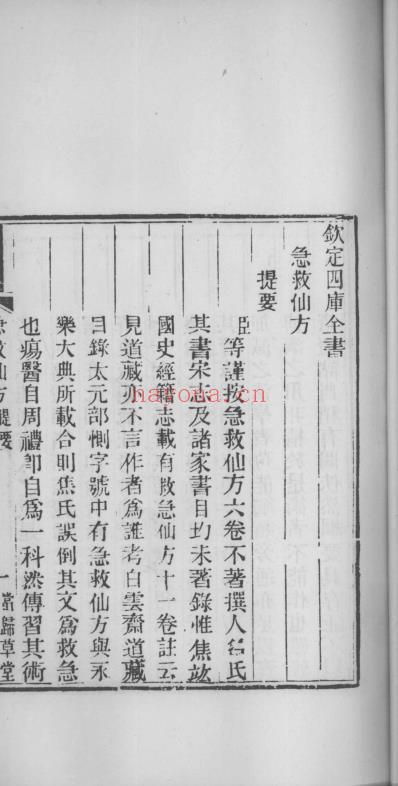 欽定四庫全書
急救仙方
提要
臣等謹按急救仙方六卷不著撰人名氏
其書宋志及諸家書目均未著錄惟焦竑
國史經籍志載有救急仙方十一卷註云
見道藏亦不言作者爲誰考白雲齋道藏
目錄太元部惻字號中有急救仙方與永
樂大典所載合則焦氏誤倒其文爲救急
也瘍醫自周禮卽自爲一科然傳習其術
急救仙方 提要 一 當歸草堂
nayona.cn